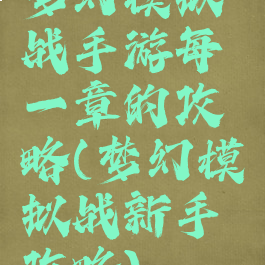 梦幻模拟
战手游每
一章的攻
略(梦幻模
拟战新手
攻略)